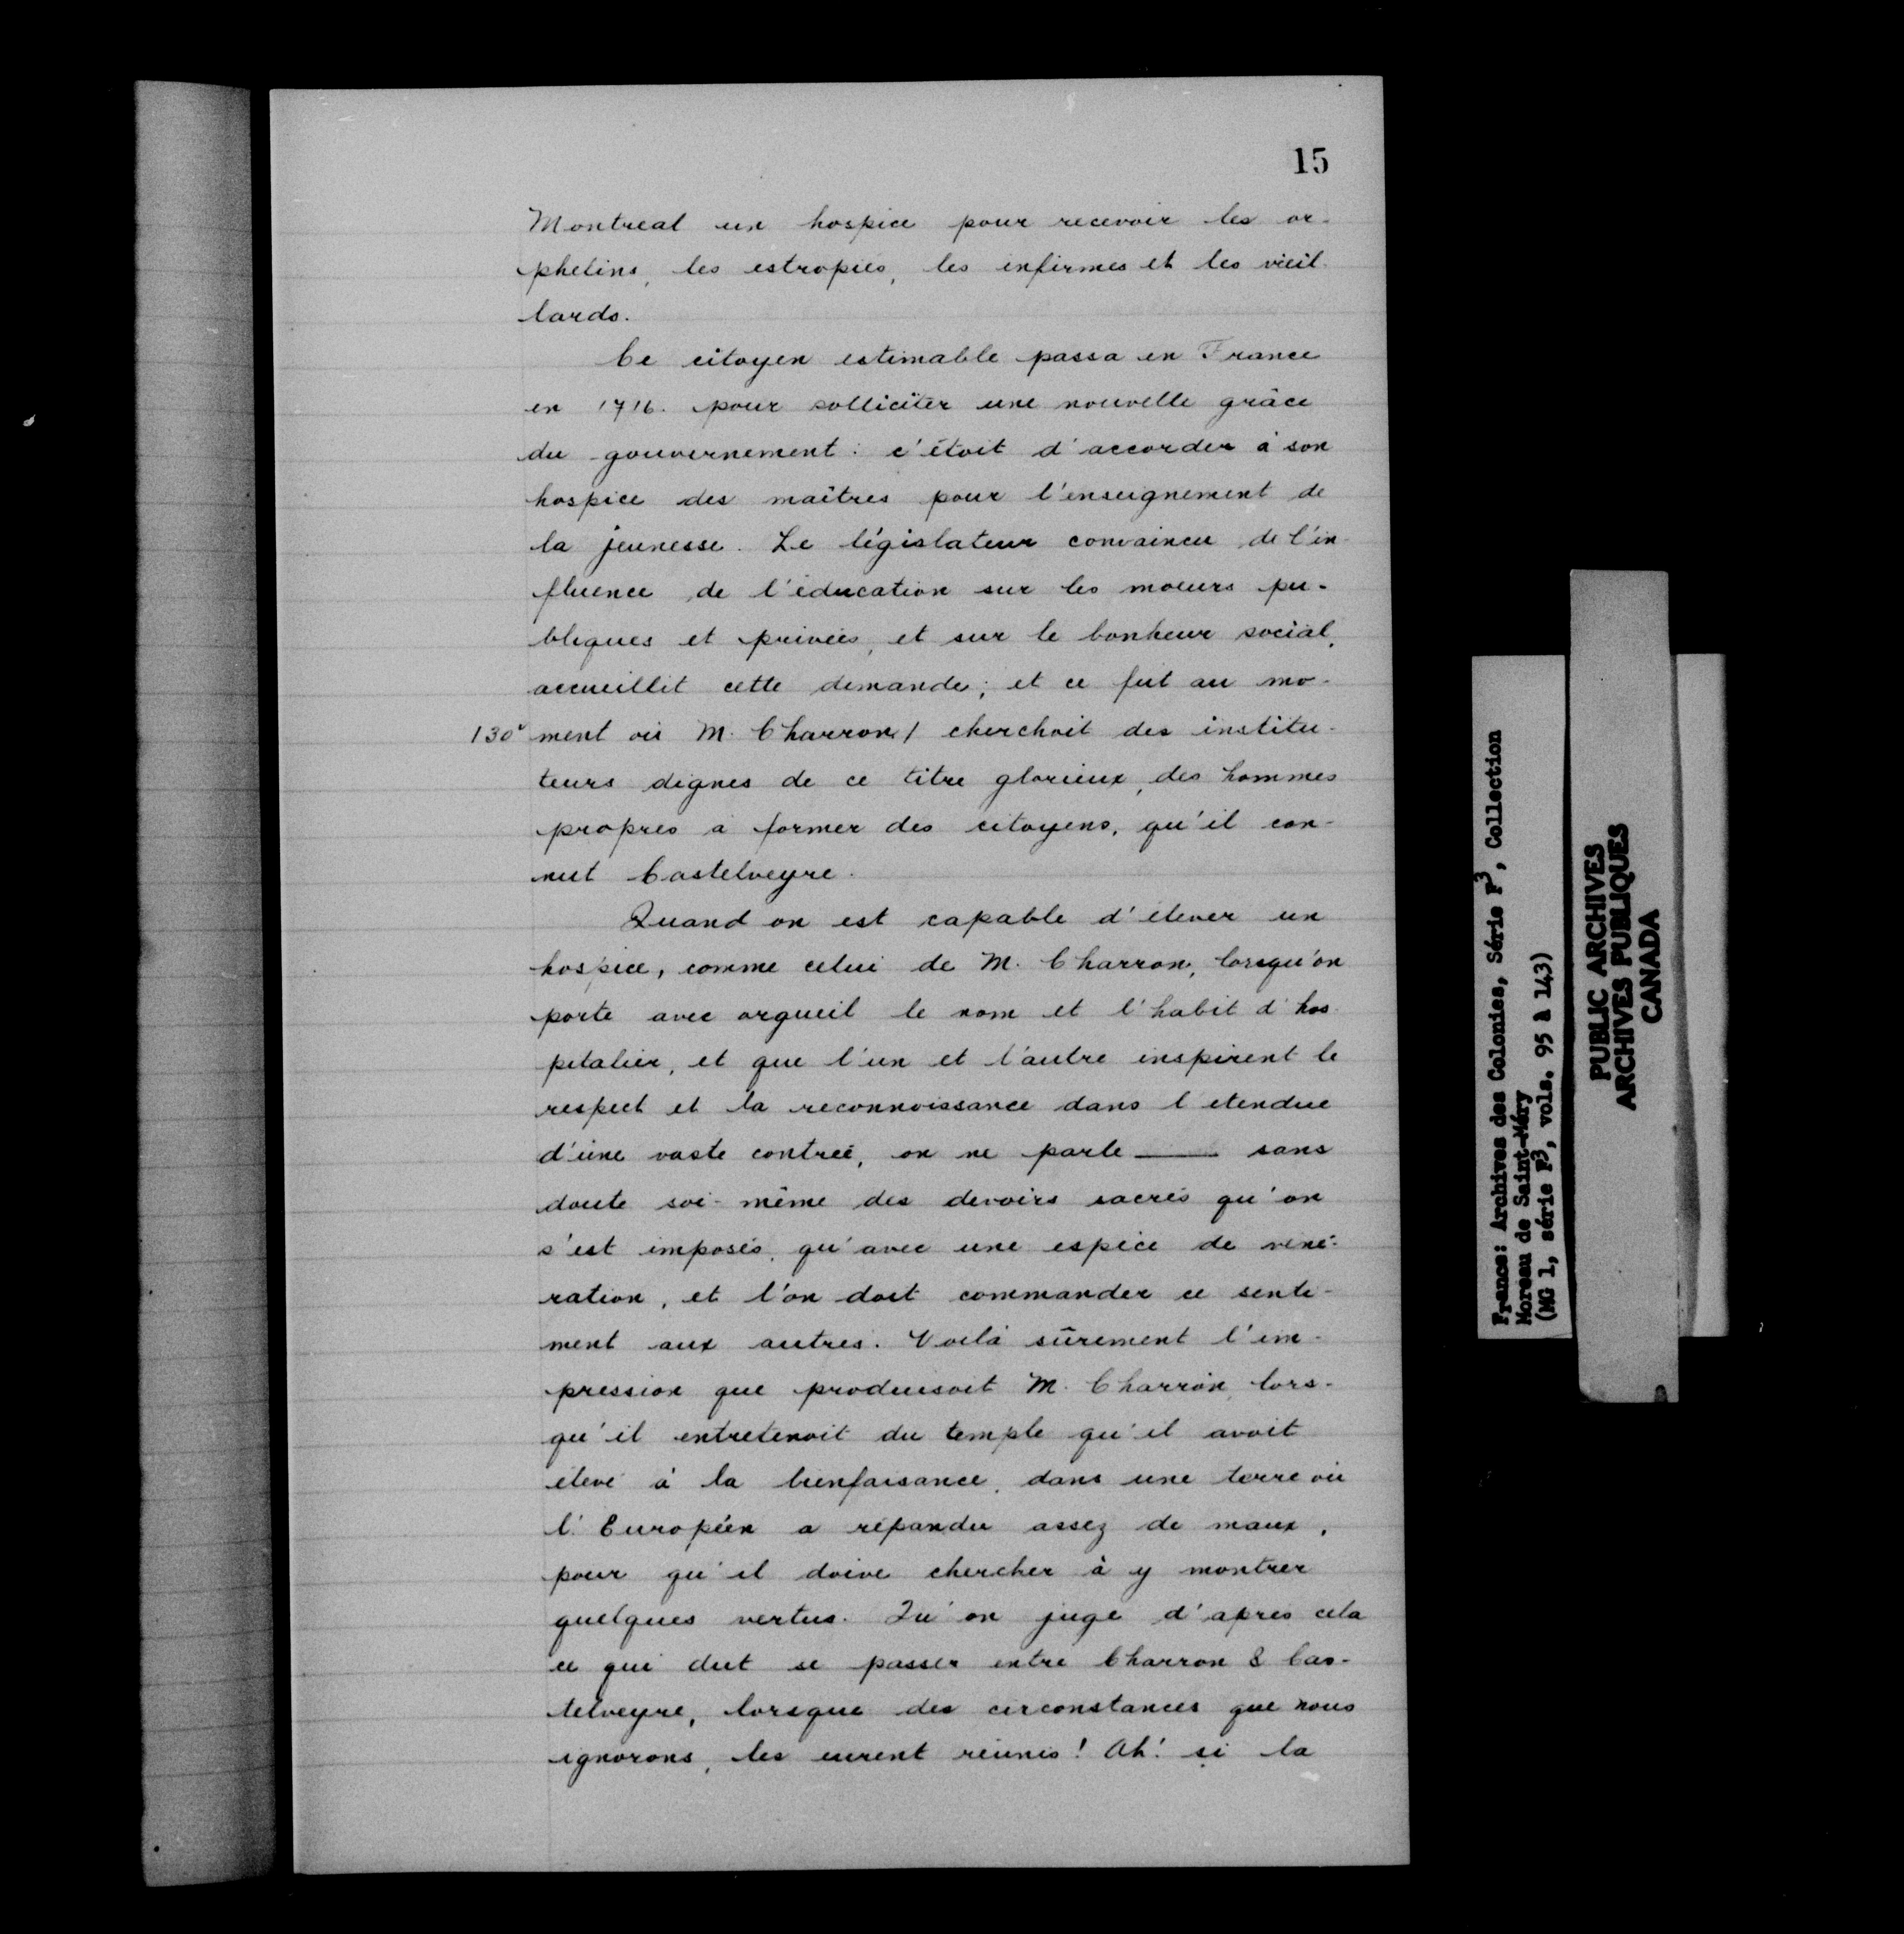 15
Montreal un hospice pour recevoir les or-
phelins, les estropiés, les infirmes et les vieil-
lards.
Ce citoyen estimable passa en France
en 1716. pour solliciter une nouvelle grâce
du gouvernement: c'étoit d'accorder à son
hospice des maîtres pour l'enseignement de
la jeunesse. Le législateur convaincu de l'in-
fluence de l'éducation sur les moeurs pu-
bliques et privées, et sur le bonheur social,
accueillit cette demande; et ce fut au mo-
130v ment où M. Charron / cherchoit des institu-
teurs dignes de ce titre glorieux, des hommes
propres a former des citoyens, qu'il con-
nut Castelveyre.
Quand on est capable d'élever un
hospice, comme celui de M. Charron, lorsqu'on
porte avec orgueil le nom et l'habit d'hos-
pitalier, et que l'un et l'autre inspirent le
respect et la reconnoissance dans l'etendue
d'une vaste contreé, on ne parle —— sans
doute soi-même des devoirs sacrés qu'on
s'est imposés, qu'avec une espèce de véné-
ration, et l'on doit commander ce senti-
ment aux autres. Voilà sûrement l'im-
pression que produisoit M. Charron, lors-
qu'il entretenoit du temple qu'il avoit
élevé à la bienfaisance, dans une terre où
l'Européen a répandu assez de maux,
pour qu'il doive chercher à y montrer
quelques vertus. Qu'on juge d'après cela
ce qui dut se passer entre Charron & Cas-
telveyre, lorsque des circonstances que nous
ignorons, les eurent réunis! Ah! si la
France: Archives des Colonies, Série F3, Collection
Moreau de Saint-Méry
(MG 1, série F3, vols. 95 à 143)
PUBLIC ARCHIVES
ARCHIVES PUBLIQUES
CANADA